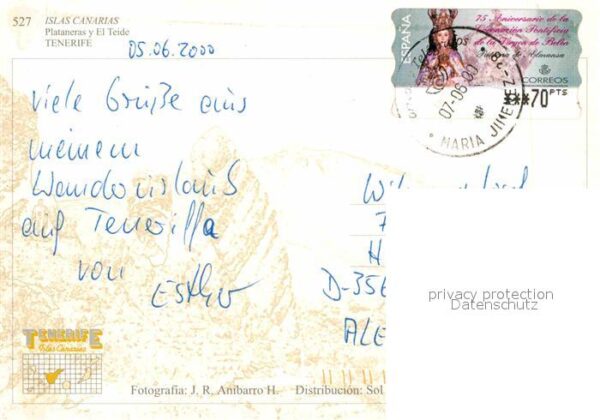 527
ISLAS CANARIAS
Plataneras y El Teide
TENERIFE
05.06.2000
Viele Grüße aus
meinem
Wanderurlaub
auf Teneriffa
von
Esther
ESPAÑA
75 Aniversario de la
Coronación Pontificia
de la Virgen de Belén
Patrona de Almansa
CORREOS
***70 PTS
07-06-00
MARIA JIMENEZ
D-356
ALE
privacy protection
Datenschutz
TENERIFE
Islas Canarias
Fotografía: J. R. Anibarro H.
Distribución: Sol